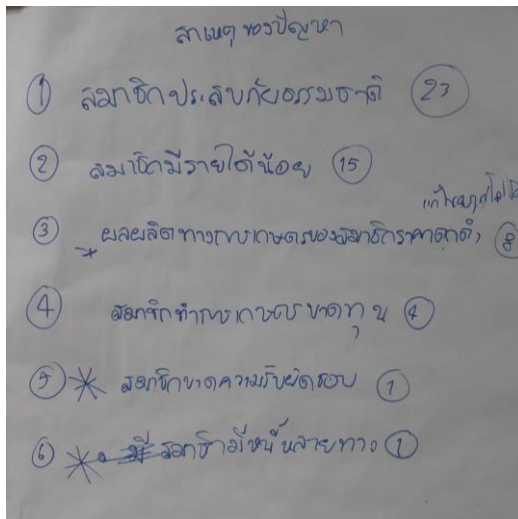 สาเหตุของปัญหา
① สมาชิกประสบภัยธรรมชาติ 23
② สมาชิกมีรายได้น้อย 15
③ * ผลผลิตทางการเกษตรของสมาชิกราคาตกต่ำ 8
④ สมาชิกทำการเกษตรขาดทุน 4
⑤ * สมาชิกขาดความรับผิดชอบ 1
⑥ * สมาชิกมีหนี้หลายทาง 1